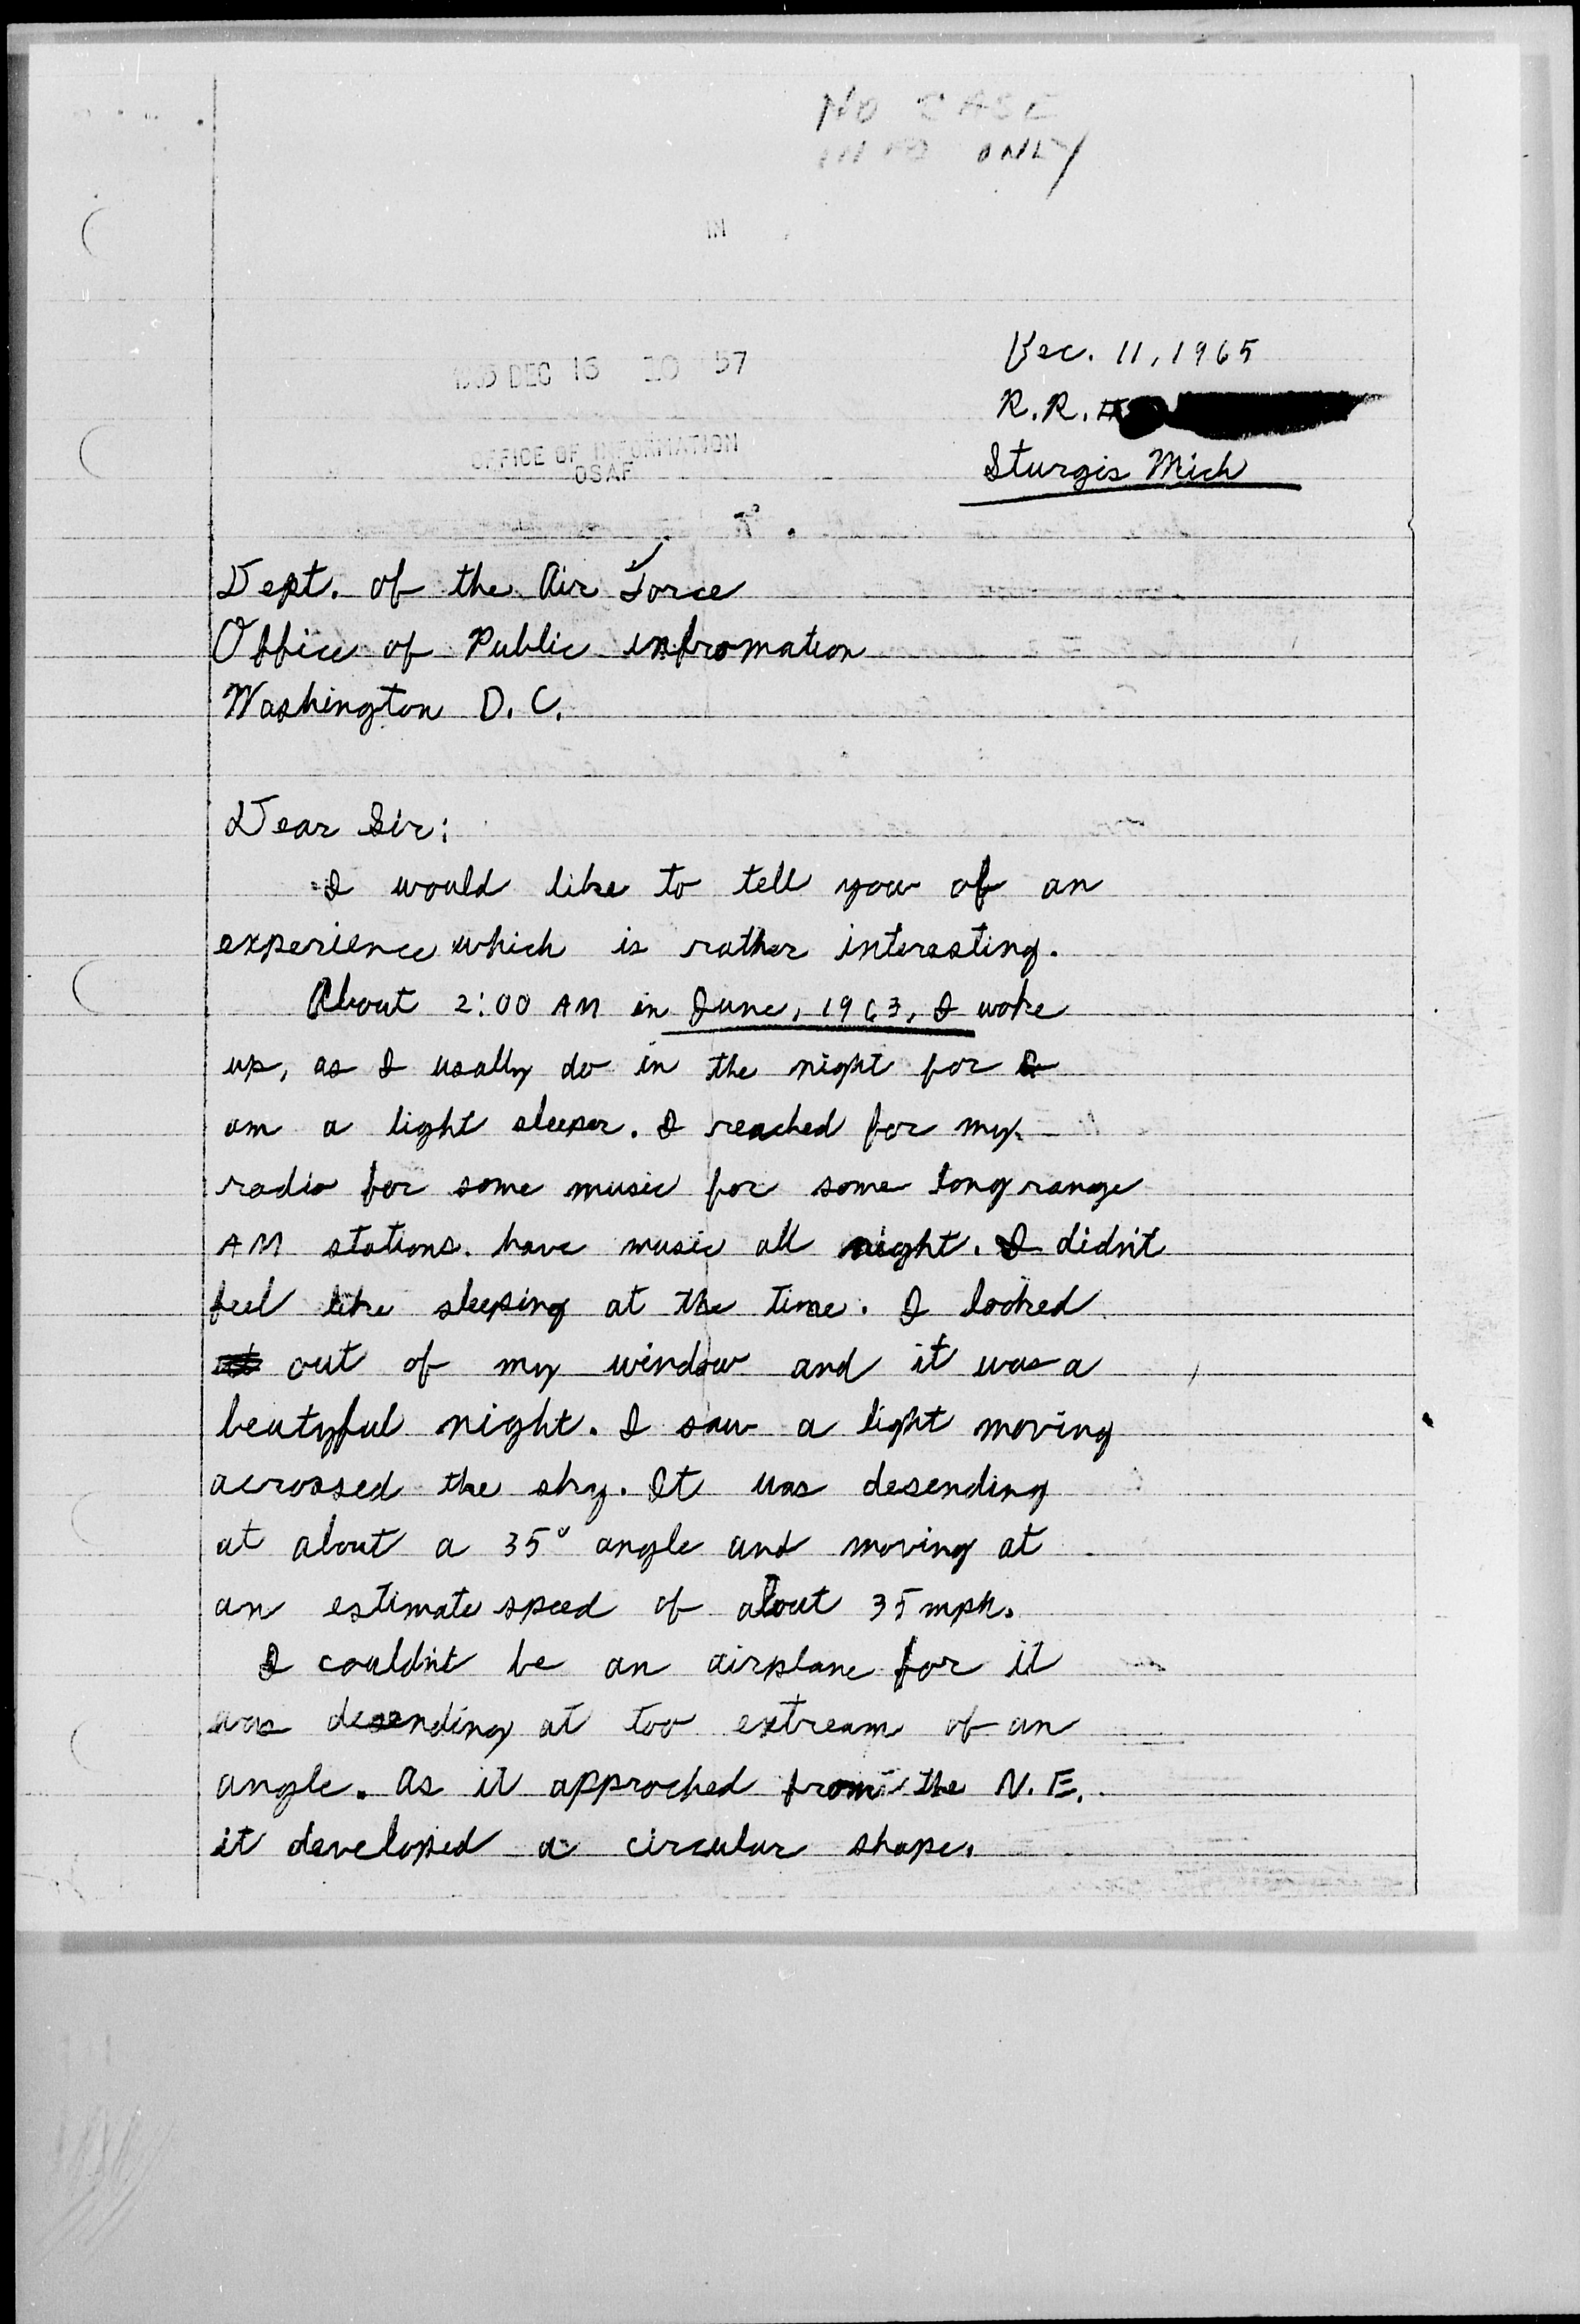 NO CASE
INFO ONLY
IN
Dec. 11, 1965
1965 DEC 15 10 57
R.R.
OFFICE OF INFORMATION
OSAF
Sturgis Mich
Dept. of the Air Force
Office of Public infromation
Washington D.C.
Dear Sir:
I would like to tell you of an
experience which is rather interesting.
About 2:00 AM in June, 1963, I woke
up, as I usally do in the night for I
am a light sleeper. I reached for my
radio for some music for some long range
AM stations. have music all night. I didn't
feel like sleeping at the time. I looked
out of my window and it was a
beutyful night. I saw a light moving
acrossed the sky. It was desending
at about a 35° angle and moving at
an estimate speed of about 35 mph.
I couldn't be an airplane for it
was desending at too extream of an
angle. As it approched from the N.E.
it developed a circular shape.